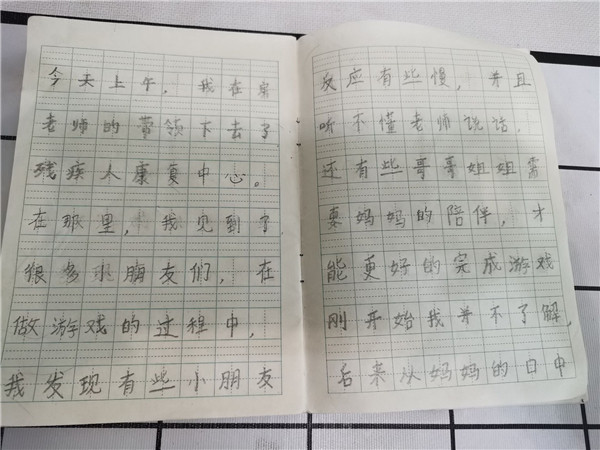 今天上午，我在宗
老师的带领下去了
残疾人康复中心。
在那里，我见到了
很多小朋友们，在
做游戏的过程中，
我发现有些小朋友
反应有些慢，并且
听不懂老师说话，
还有些哥哥姐姐需
要妈妈的陪伴，才
能更好的完成游戏
刚开始我并不了解，
后来从妈妈的口中